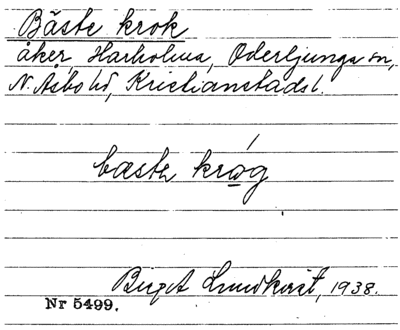 Bäste krok
åker, Harholma, Oderljunga sn,
N. Åsbo hd, Kristianstads l.
bæste krǫ́g
Birgit Lundkvist, 1938.
Nr 5499.